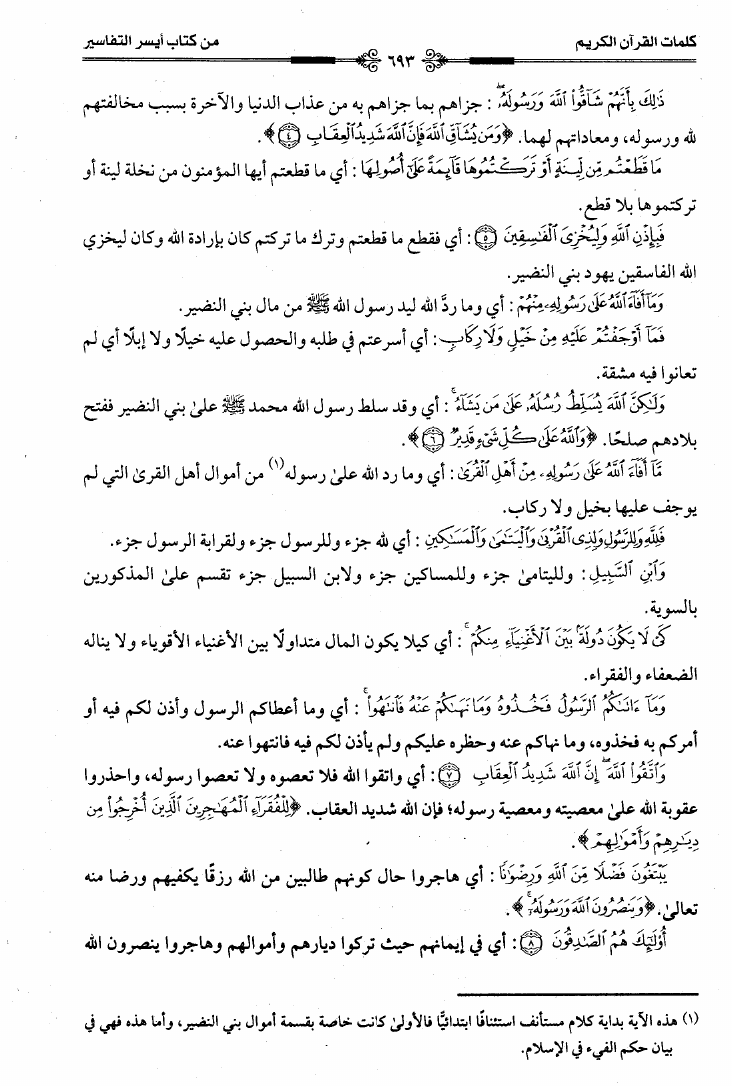 كلمات القرآن الكريم
٦٩٣
من كتاب أيسر التفاسير
ذَٰلِكَ بِأَنَّهُمْ شَآقُّوا۟ ٱللَّهَ وَرَسُولَهُۥ ۖ : جزاهم بما جزاهم به من عذاب الدنيا والآخرة بسبب مخالفتهم
لله ورسوله، ومعاداتهم لهما. ﴿وَمَن يُشَآقِّ ٱللَّهَ فَإِنَّ ٱللَّهَ شَدِيدُ ٱلْعِقَابِ ٤﴾.
مَا قَطَعْتُم مِّن لِّينَةٍ أَوْ تَرَكْتُمُوهَا قَآئِمَةً عَلَىٰٓ أُصُولِهَا : أي ما قطعتم أيها المؤمنون من نخلة لينة أو
تركتموها بلا قطع.
فَبِإِذْنِ ٱللَّهِ وَلِيُخْزِىَ ٱلْفَـٰسِقِينَ ٥ : أي فقطع ما قطعتم وترك ما تركتم كان بإرادة الله وكان ليخزي
الله الفاسقين يهود بني النضير.
وَمَآ أَفَآءَ ٱللَّهُ عَلَىٰ رَسُولِهِۦ مِنْهُمْ : أي وما ردَّ الله ليد رسول الله ﷺ من مال بني النضير.
فَمَآ أَوْجَفْتُمْ عَلَيْهِ مِنْ خَيْلٍ وَلَا رِكَابٍ : أي أسرعتم في طلبه والحصول عليه خيلًا ولا إبلًا أي لم
تعانوا فيه مشقة.
وَلَـٰكِنَّ ٱللَّهَ يُسَلِّطُ رُسُلَهُۥ عَلَىٰ مَن يَشَآءُ ۚ : أي وقد سلط رسول الله محمد ﷺ علىٰ بني النضير ففتح
بلادهم صلحًا. ﴿وَٱللَّهُ عَلَىٰ كُلِّ شَىْءٍ قَدِيرٌ ٦﴾.
مَّآ أَفَآءَ ٱللَّهُ عَلَىٰ رَسُولِهِۦ مِنْ أَهْلِ ٱلْقُرَىٰ : أي وما رد الله علىٰ رسوله(١) من أموال أهل القرىٰ التي لم
يوجف عليها بخيل ولا ركاب.
فَلِلَّهِ وَلِلرَّسُولِ وَلِذِى ٱلْقُرْبَىٰ وَٱلْيَتَـٰمَىٰ وَٱلْمَسَـٰكِينِ : أي لله جزء وللرسول جزء ولقرابة الرسول جزء.
وَٱبْنِ ٱلسَّبِيلِ : ولليتامىٰ جزء وللمساكين جزء ولابن السبيل جزء تقسم علىٰ المذكورين
بالسوية.
كَىْ لَا يَكُونَ دُولَةًۢ بَيْنَ ٱلْأَغْنِيَآءِ مِنكُمْ ۚ : أي كيلا يكون المال متداولًا بين الأغنياء الأقوياء ولا يناله
الضعفاء والفقراء.
وَمَآ ءَاتَىٰكُمُ ٱلرَّسُولُ فَخُذُوهُ وَمَا نَهَىٰكُمْ عَنْهُ فَٱنتَهُوا۟ ۚ : أي وما أعطاكم الرسول وأذن لكم فيه أو
أمركم به فخذوه، وما نهاكم عنه وحظره عليكم ولم يأذن لكم فيه فانتهوا عنه.
وَٱتَّقُوا۟ ٱللَّهَ ۖ إِنَّ ٱللَّهَ شَدِيدُ ٱلْعِقَابِ ٧ : أي واتقوا الله فلا تعصوه ولا تعصوا رسوله، واحذروا
عقوبة الله علىٰ معصيته ومعصية رسوله؛ فإن الله شديد العقاب. ﴿لِلْفُقَرَآءِ ٱلْمُهَـٰجِرِينَ ٱلَّذِينَ أُخْرِجُوا۟ مِن
دِيَـٰرِهِمْ وَأَمْوَٰلِهِمْ﴾.
يَبْتَغُونَ فَضْلًا مِّنَ ٱللَّهِ وَرِضْوَٰنًا : أي هاجروا حال كونهم طالبين من الله رزقًا يكفيهم ورضا منه
تعالىٰ. ﴿وَيَنصُرُونَ ٱللَّهَ وَرَسُولَهُۥٓ ۚ﴾.
أُو۟لَـٰٓئِكَ هُمُ ٱلصَّـٰدِقُونَ ٨ : أي في إيمانهم حيث تركوا ديارهم وأموالهم وهاجروا ينصرون الله
(١) هذه الآية بداية كلام مستأنف استئنافًا ابتدائيًّا فالأولىٰ كانت خاصة بقسمة أموال بني النضير، وأما هذه فهي في
بيان حكم الفيء في الإسلام.